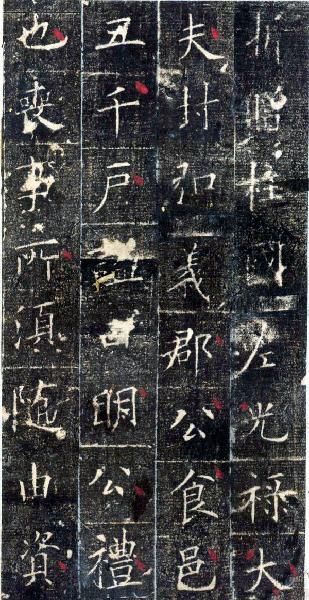 贈柱國左光祿大
夫封弘義郡公食邑
五千戶謚曰明公禮
也喪事所須隨由資